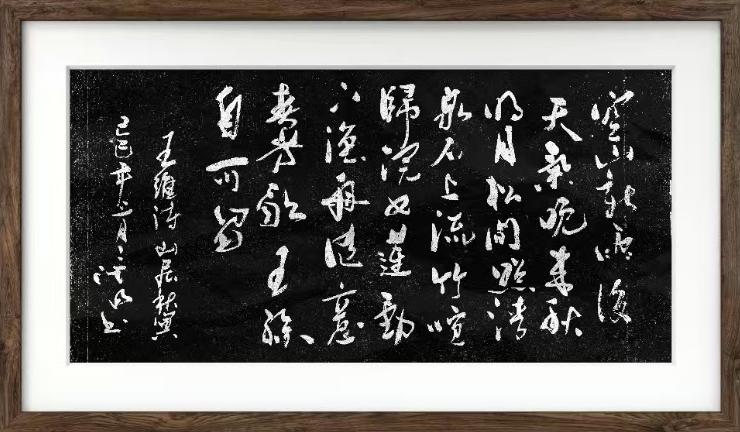 空山新雨後
天氣晚来秋
明月松間照清
泉石上流竹喧
歸浣女蓮動
下漁舟随意
春芳歇王孫
自可留
王維诗山居秋暝
己巳年六月
书